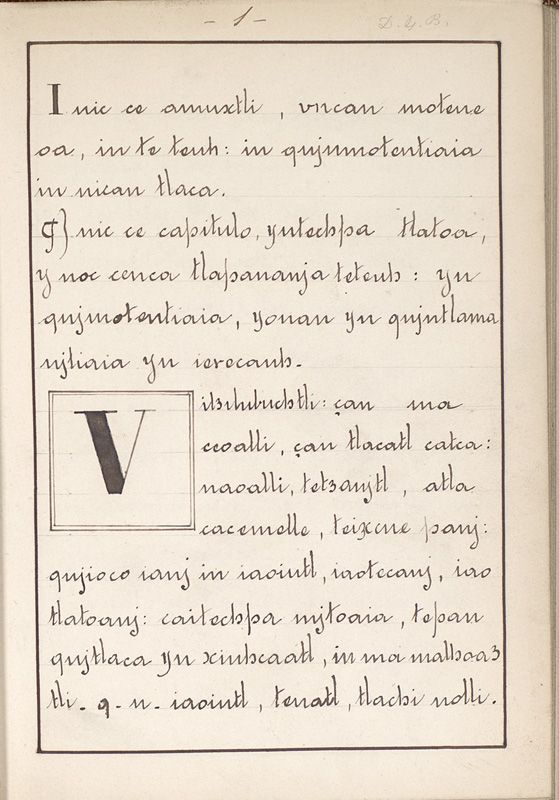 - 1 -
D. G. B.
Inic ce amuxtli, vncan motene
oa, in te teuh: in qujnmotentiaia
in nican tlaca.
¶) nic ce capitulo, yntechpa tlatoa,
y noc cenca tlapananja teteuh: yn
qujmotentiaia, yonan yn qujntlama
njtiaia yn ievecauh.
Vitzilubuchtli: çan ma
ceoalli, çan tlacatl catca:
naoalli, tetzanjtl, atla
cacemelle, teixcue panj:
qujioco ianj in iaoiutl, iaotecanj, iao
tlatoanj: caitechpa mjtoaia, tepan
qujtlaca yn xiuhcaatl, in ma malhoaz
tli. q. n. iaoiutl, teuatl, tlachi nolli.